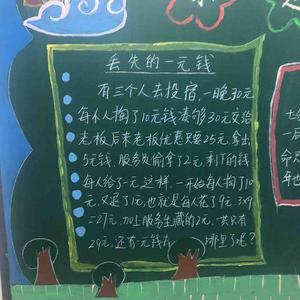 丢失的一元钱
有三个人去投宿,一晚30元
每个人掏了10元钱凑够30元交给
老板后来老板优惠只要25元,拿出
5元钱,服务员偷拿了2元,剩下的钱
每人给了一元,这样,一开始每人掏了10
元,又退了1元,也就是每人花了9元,3x9
=27元,加上服务生藏的2元,一共只有
29元,还有一元钱去哪里了呢?